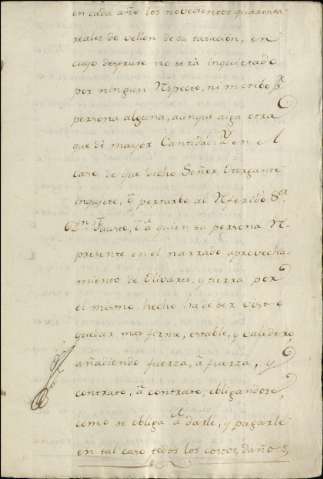 en cada año los novecientos quarenta
reales de vellon de su tasacion, en
cuyo desfrute no será inquietado
por ningun respecto, ni movibo pr.
persona alguna, aunque aiga otra
que dé mayor Cantidad, y en el
caso de que dicho Señor Otorgante
inquiete, ó perturbe al referido Sr.
Dn. Fausto, ó á quien su persona re
presente en el narrado aprovecha
miento de Olivares, y tierra por
el mismo hecho ha de ser visto
quedar mas firme, estable, y valedero
añadiendo fuerza, á fuerza, y
contrato, á contrato, obligandose,
como se obliga á darle, y pagarle
en tal caso todos los costos, daños,